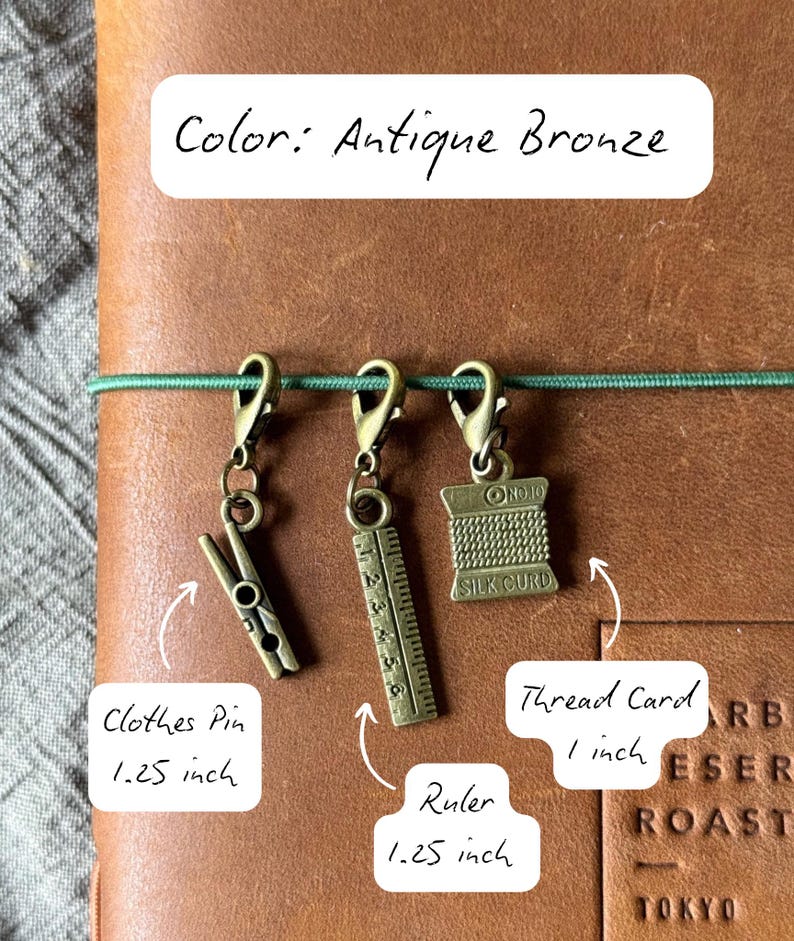 Color: Antique Bronze
NO.10
SILK CURD
1
2
3
4
5
6
Clothes Pin
1.25 inch
Ruler
1.25 inch
Thread Card
1 inch
ROAST
TOKYO